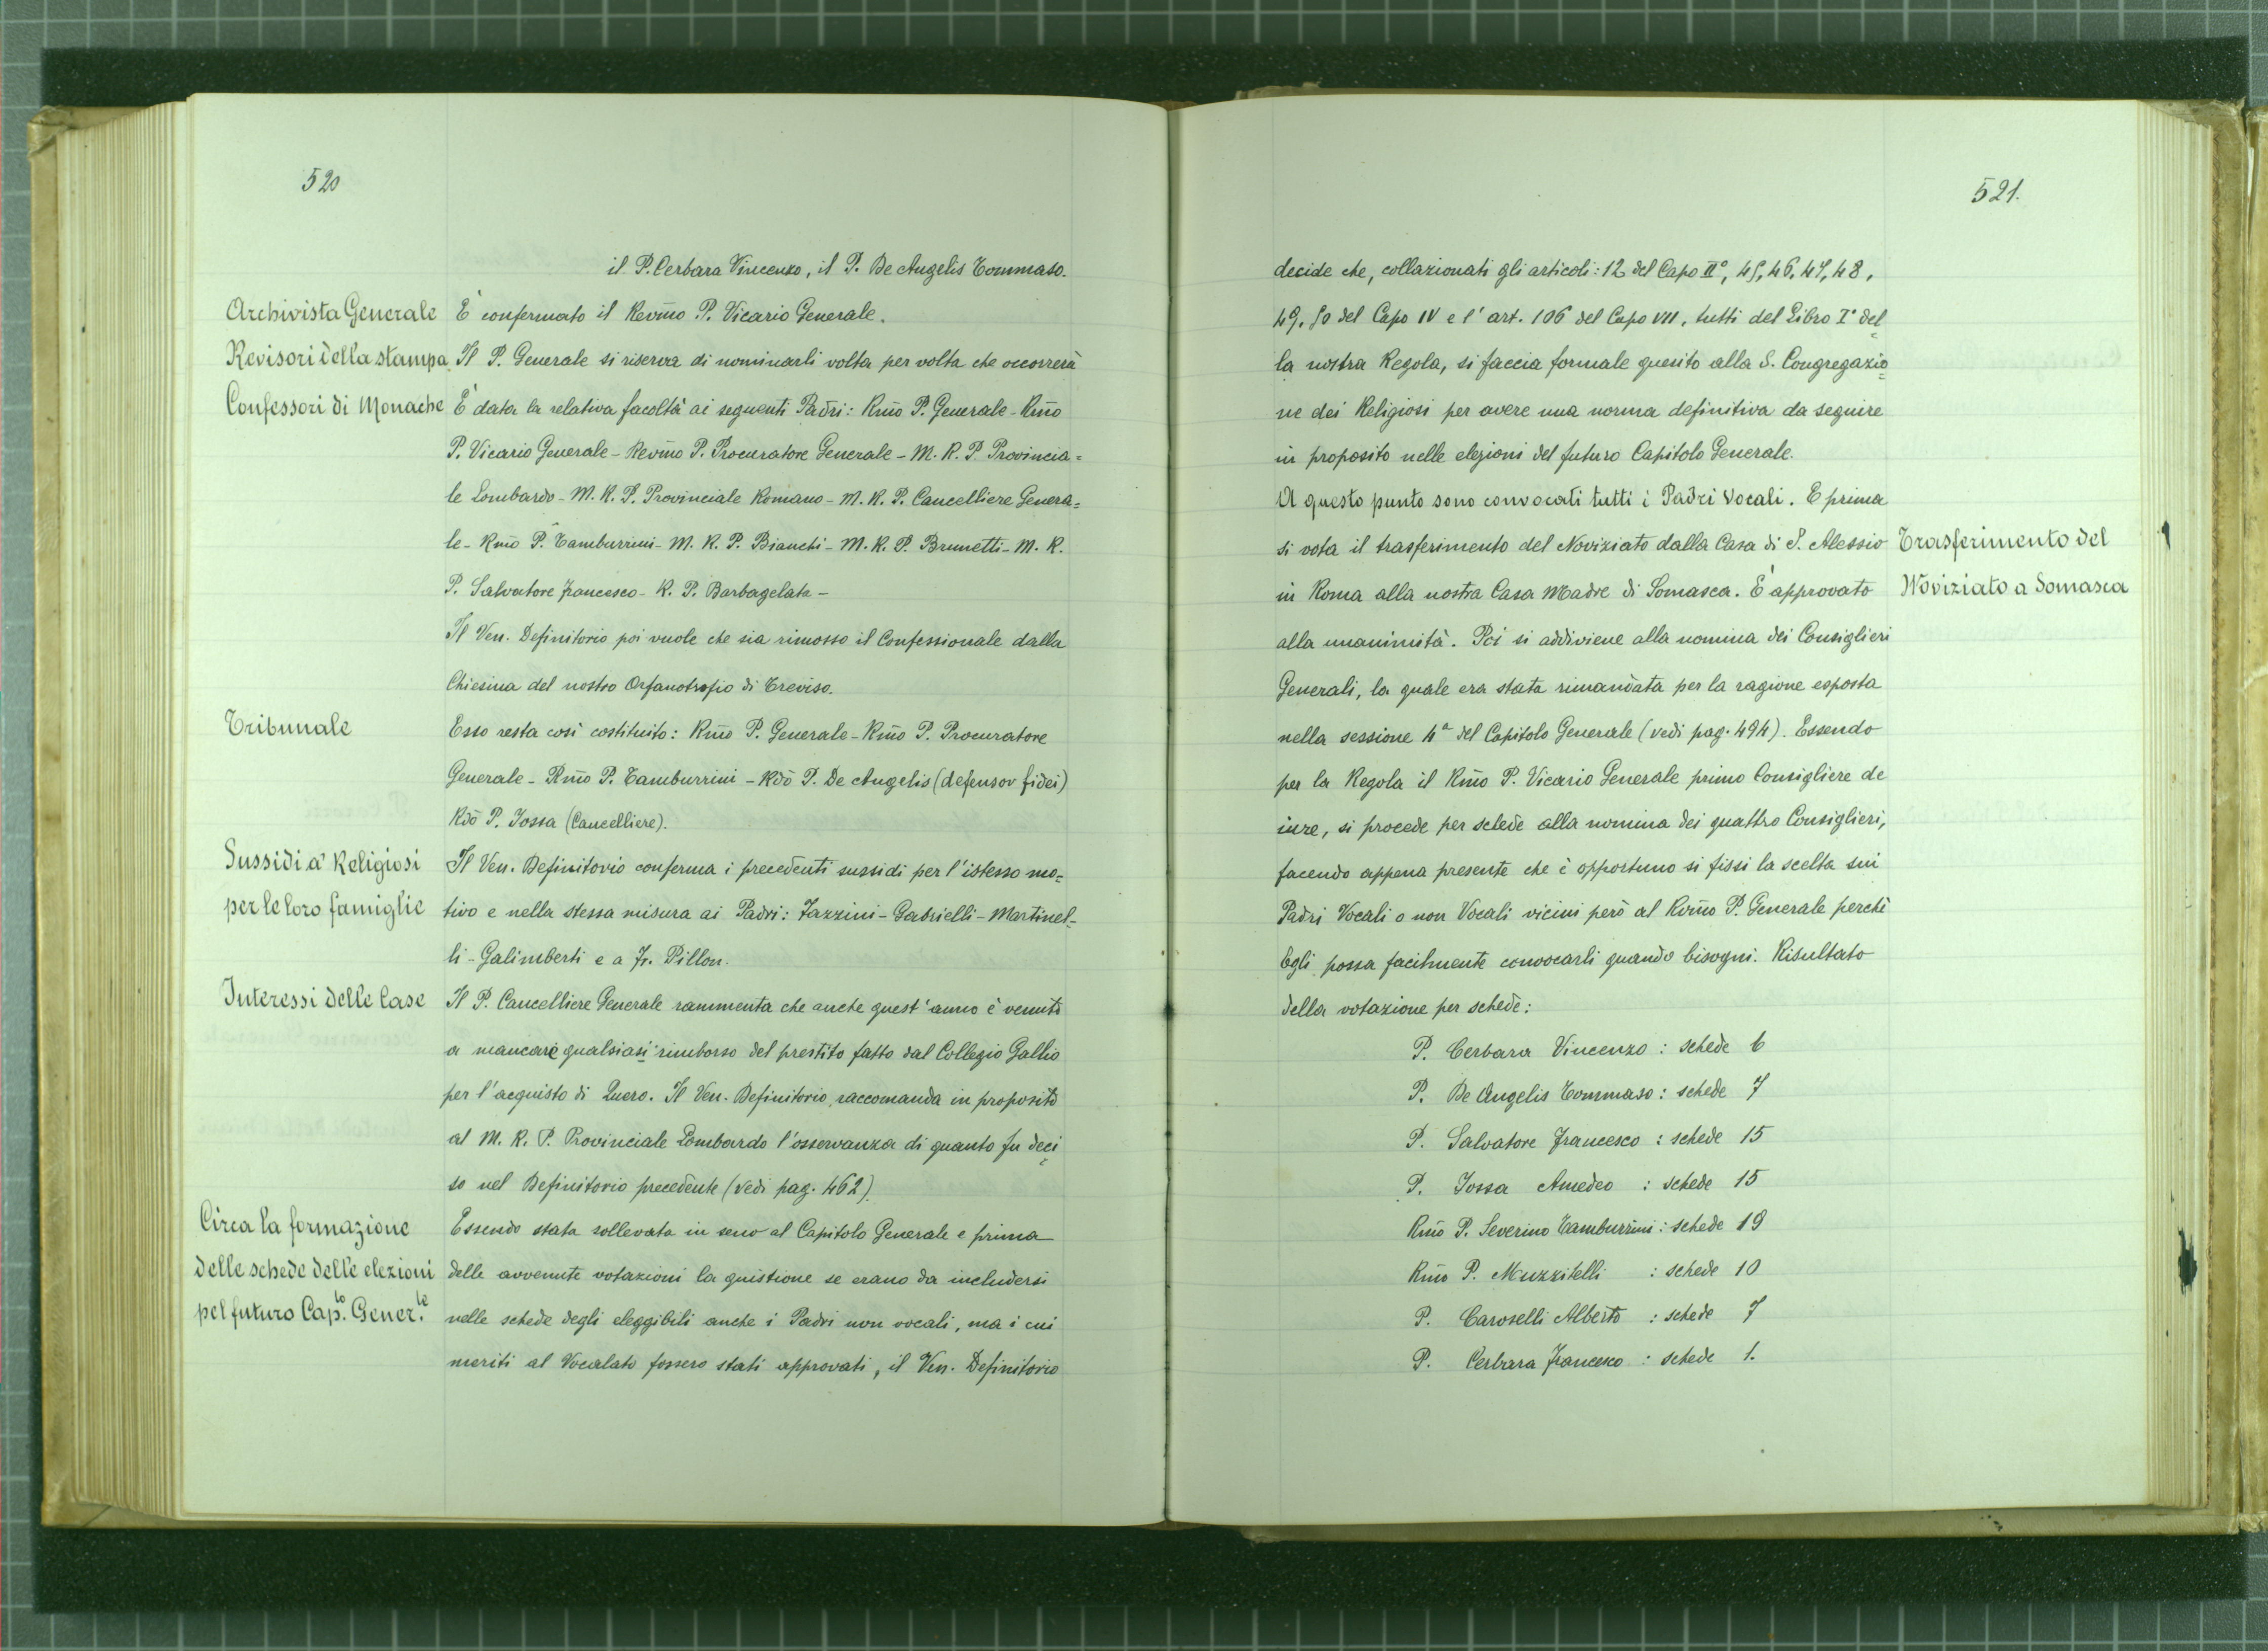 520
il P. Cerbara Vincenzo, il P. De Angelis Tommaso.
Archivista Generale
È confermato il Revm̃o P. Vicario Generale.
Revisori della stampa
Il P. Generale si riserva di nominarli volta per volta che occorrerà
Confessori di Monache
È data la relativa facoltà ai seguenti Padri: Rm̃o P. Generale - Rm̃o
P. Vicario Generale - Revm̃o P. Procuratore Generale - M. R. P. Provincia=
le Lombardo - M. R. P. Provinciale Romano - M. R. P. Cancelliere Genera=
le - Rm̃o P. Tamburrini - M. R. P. Bianchi - M. R. P. Brunetti - M. R.
P. Salvatore Francesco - R. P. Barbagelata -
Il Ven. Definitorio poi vuole che sia rimosso il Confessionale dalla
Chiesina del nostro Orfanotrofio di Treviso.
Tribunale
Esso resta così costituito: Rm̃o P. Generale - Rm̃o P. Procuratore
Generale - Rm̃o P. Tamburrini - Rdõ P. De Angelis (defensor fidei)
Rdõ P. Jossa (Cancelliere).
Sussidi a' Religiosi
per le loro famiglie
Il Ven. Definitorio conferma i precedenti sussidi per l'istesso mo=
tivo e nella stessa misura ai Padri: Zazzini - Gabrielli - Martinel=
li - Galimberti e a Fr. Pillon.
Interessi delle Case
Il P. Cancelliere Generale rammenta che anche quest'anno è venuto
a mancare qualsiasi rimborso del prestito fatto dal Collegio Gallio
per l'acquisto di Quero. Il Ven. Definitorio raccomanda in proposito
al M. R. P. Provinciale Lombardo l'osservanza di quanto fu deci=
so nel Definitorio precedente (vedi pag. 462).
Circa la formazione
delle schede delle elezioni
pel futuro Cap.to Gener.le
Essendo stata sollevata in seno al Capitolo Generale e prima
delle avvenute votazioni la quistione se erano da includersi
nelle schede degli eleggibili anche i Padri non vocali, ma i cui
meriti al Vocalato fossero stati approvati, il Ven. Definitorio
521.
decide che, collazionati gli articoli: 12 del Capo II°, 45, 46, 47, 48,
49, 50 del Capo IV e l'art. 106 del Capo VII, tutti del Libro I° del=
la nostra Regola, si faccia formale quesito alla S. Congregazio=
ne dei Religiosi per avere una norma definitiva da seguire
in proposito nelle elezioni del futuro Capitolo Generale.
A questo punto sono convocati tutti i Padri Vocali. E prima
si vota il trasferimento del Noviziato dalla Casa di S. Alessio
in Roma alla nostra Casa Madre di Somasca. È approvato
Trasferimento del
Noviziato a Somasca
alla unanimità. Poi si addiviene alla nomina dei Consiglieri
Generali, la quale era stata rimandata per la ragione esposta
nella sessione 4ª del Capitolo Generale (vedi pag. 494). Essendo
per la Regola il Rm̃o P. Vicario Generale primo Consigliere de
iure, si procede per schede alla nomina dei quattro Consiglieri,
facendo appena presente che è opportuno si fissi la scelta sui
Padri Vocali o non Vocali vicini però al Rm̃o P. Generale perchè
Egli possa facilmente convocarli quando bisogni. Risultato
della votazione per schede:
P. Cerbara Vincenzo : schede 6
P. De Angelis Tommaso : schede 7
P. Salvatore Francesco : schede 15
P. Jossa Amedeo : schede 15
Rm̃o P. Severino Tamburrini : schede 19
Rm̃o P. Muzzitelli : schede 10
P. Caroselli Alberto : schede 7
P. Cerbara Francesco : schede 1.